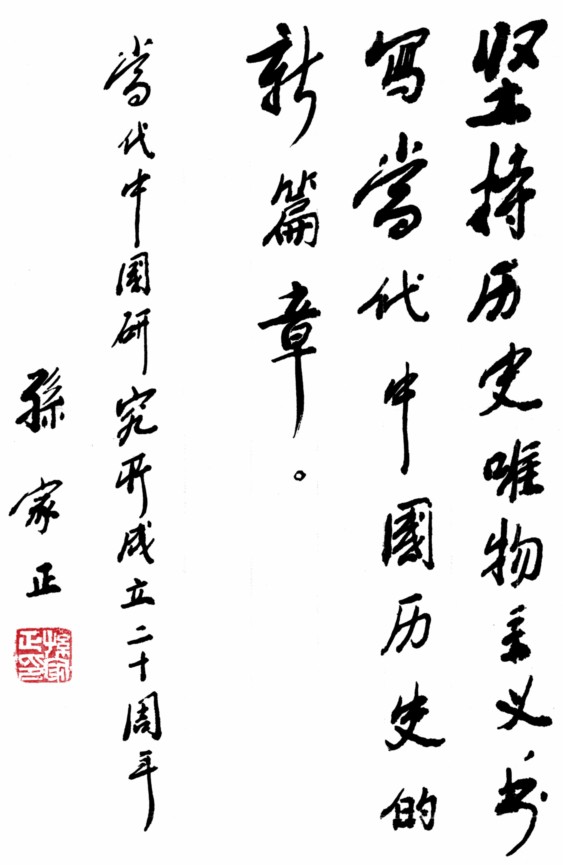 坚持历史唯物主义书
写當代中國历史的
新篇章。
當代中國研究所成立二十周年
孫家正
孫家正印